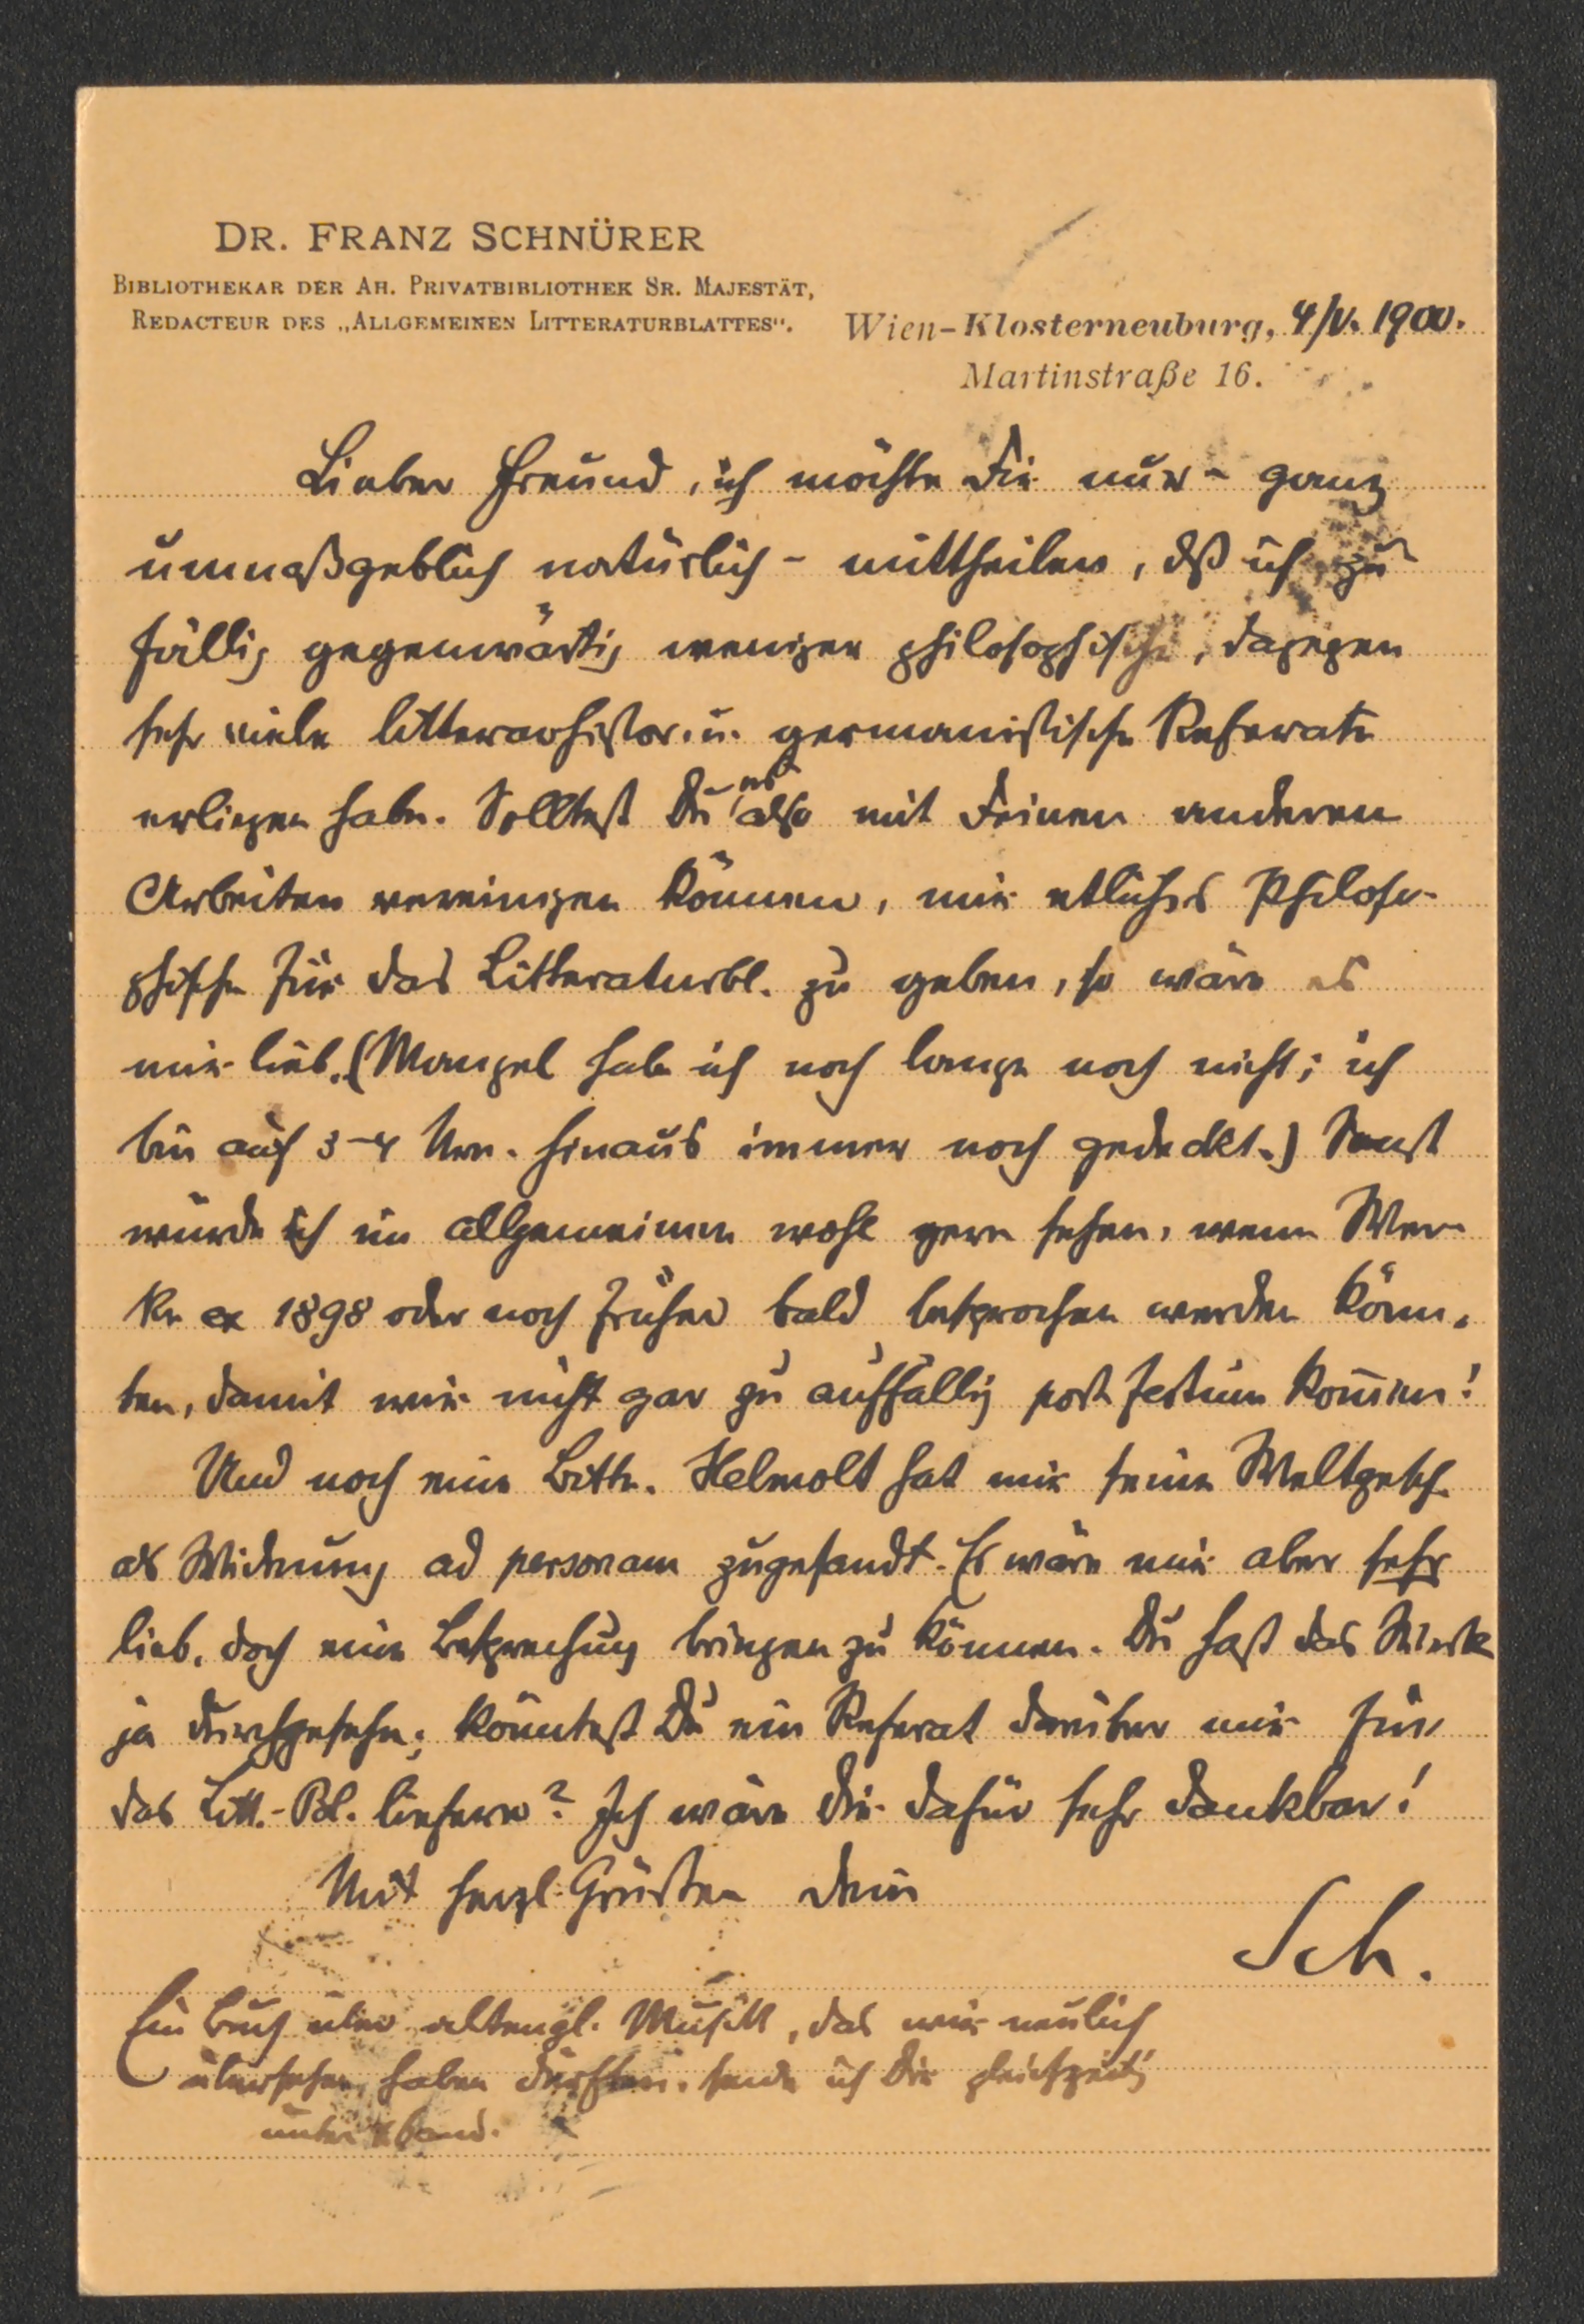 DR. FRANZ SCHNÜRER
BIBLIOTHEKAR DER AH. PRIVATBIBLIOTHEK SR. MAJESTÄT,
REDACTEUR DES „ALLGEMEINEN LITTERATURBLATTES“.
Wien-Klosterneuburg, 4/V. 1900.
Martinstraße 16.
Lieber Freund, ich möchte Dir nur – ganz
unmaßgeblich natürlich – mittheilen, dß ich zu
fällig gegenwärtig weniger philosophische, dagegen
sehr viele litterarhistor. u. germanistische Referate
erliegen habe. Solltest Du es also mit Deinen anderen
Arbeiten vereinigen können, mir etliches Philoso-
phische für das Litteraturbl. zu geben, so wäre es
mir lieb. (Mangel habe ich noch lange noch nicht; ich
bin auf 3–4 Nrn. hinaus immer noch gedeckt.) Sonst
würde ich im allgemeinen wohl gern sehen, wenn Wer-
ke ex 1898 oder noch früher bald besprochen werden könn-
ten, damit wir nicht gar zu auffällig post festum kom̄en!
Und noch eine Bitte. Helmolt hat mir seine Weltgesch.
als Widmung ad personam zugesandt. Es wäre mir aber sehr
lieb, doch eine Besprechung bringen zu können. Du hast das Werk
ja durchgesehen; könntest Du ein Referat darüber mir für
das Litt.-Bl. liefern? Ich wäre Dir dafür sehr dankbar!
Mit herzl. Grüßen Dein
Sch.
Ein Buch über altengl. Musik, das wir neulich
übersehen haben dürften, sende ich Dir gleichzeitig
unter Xband.